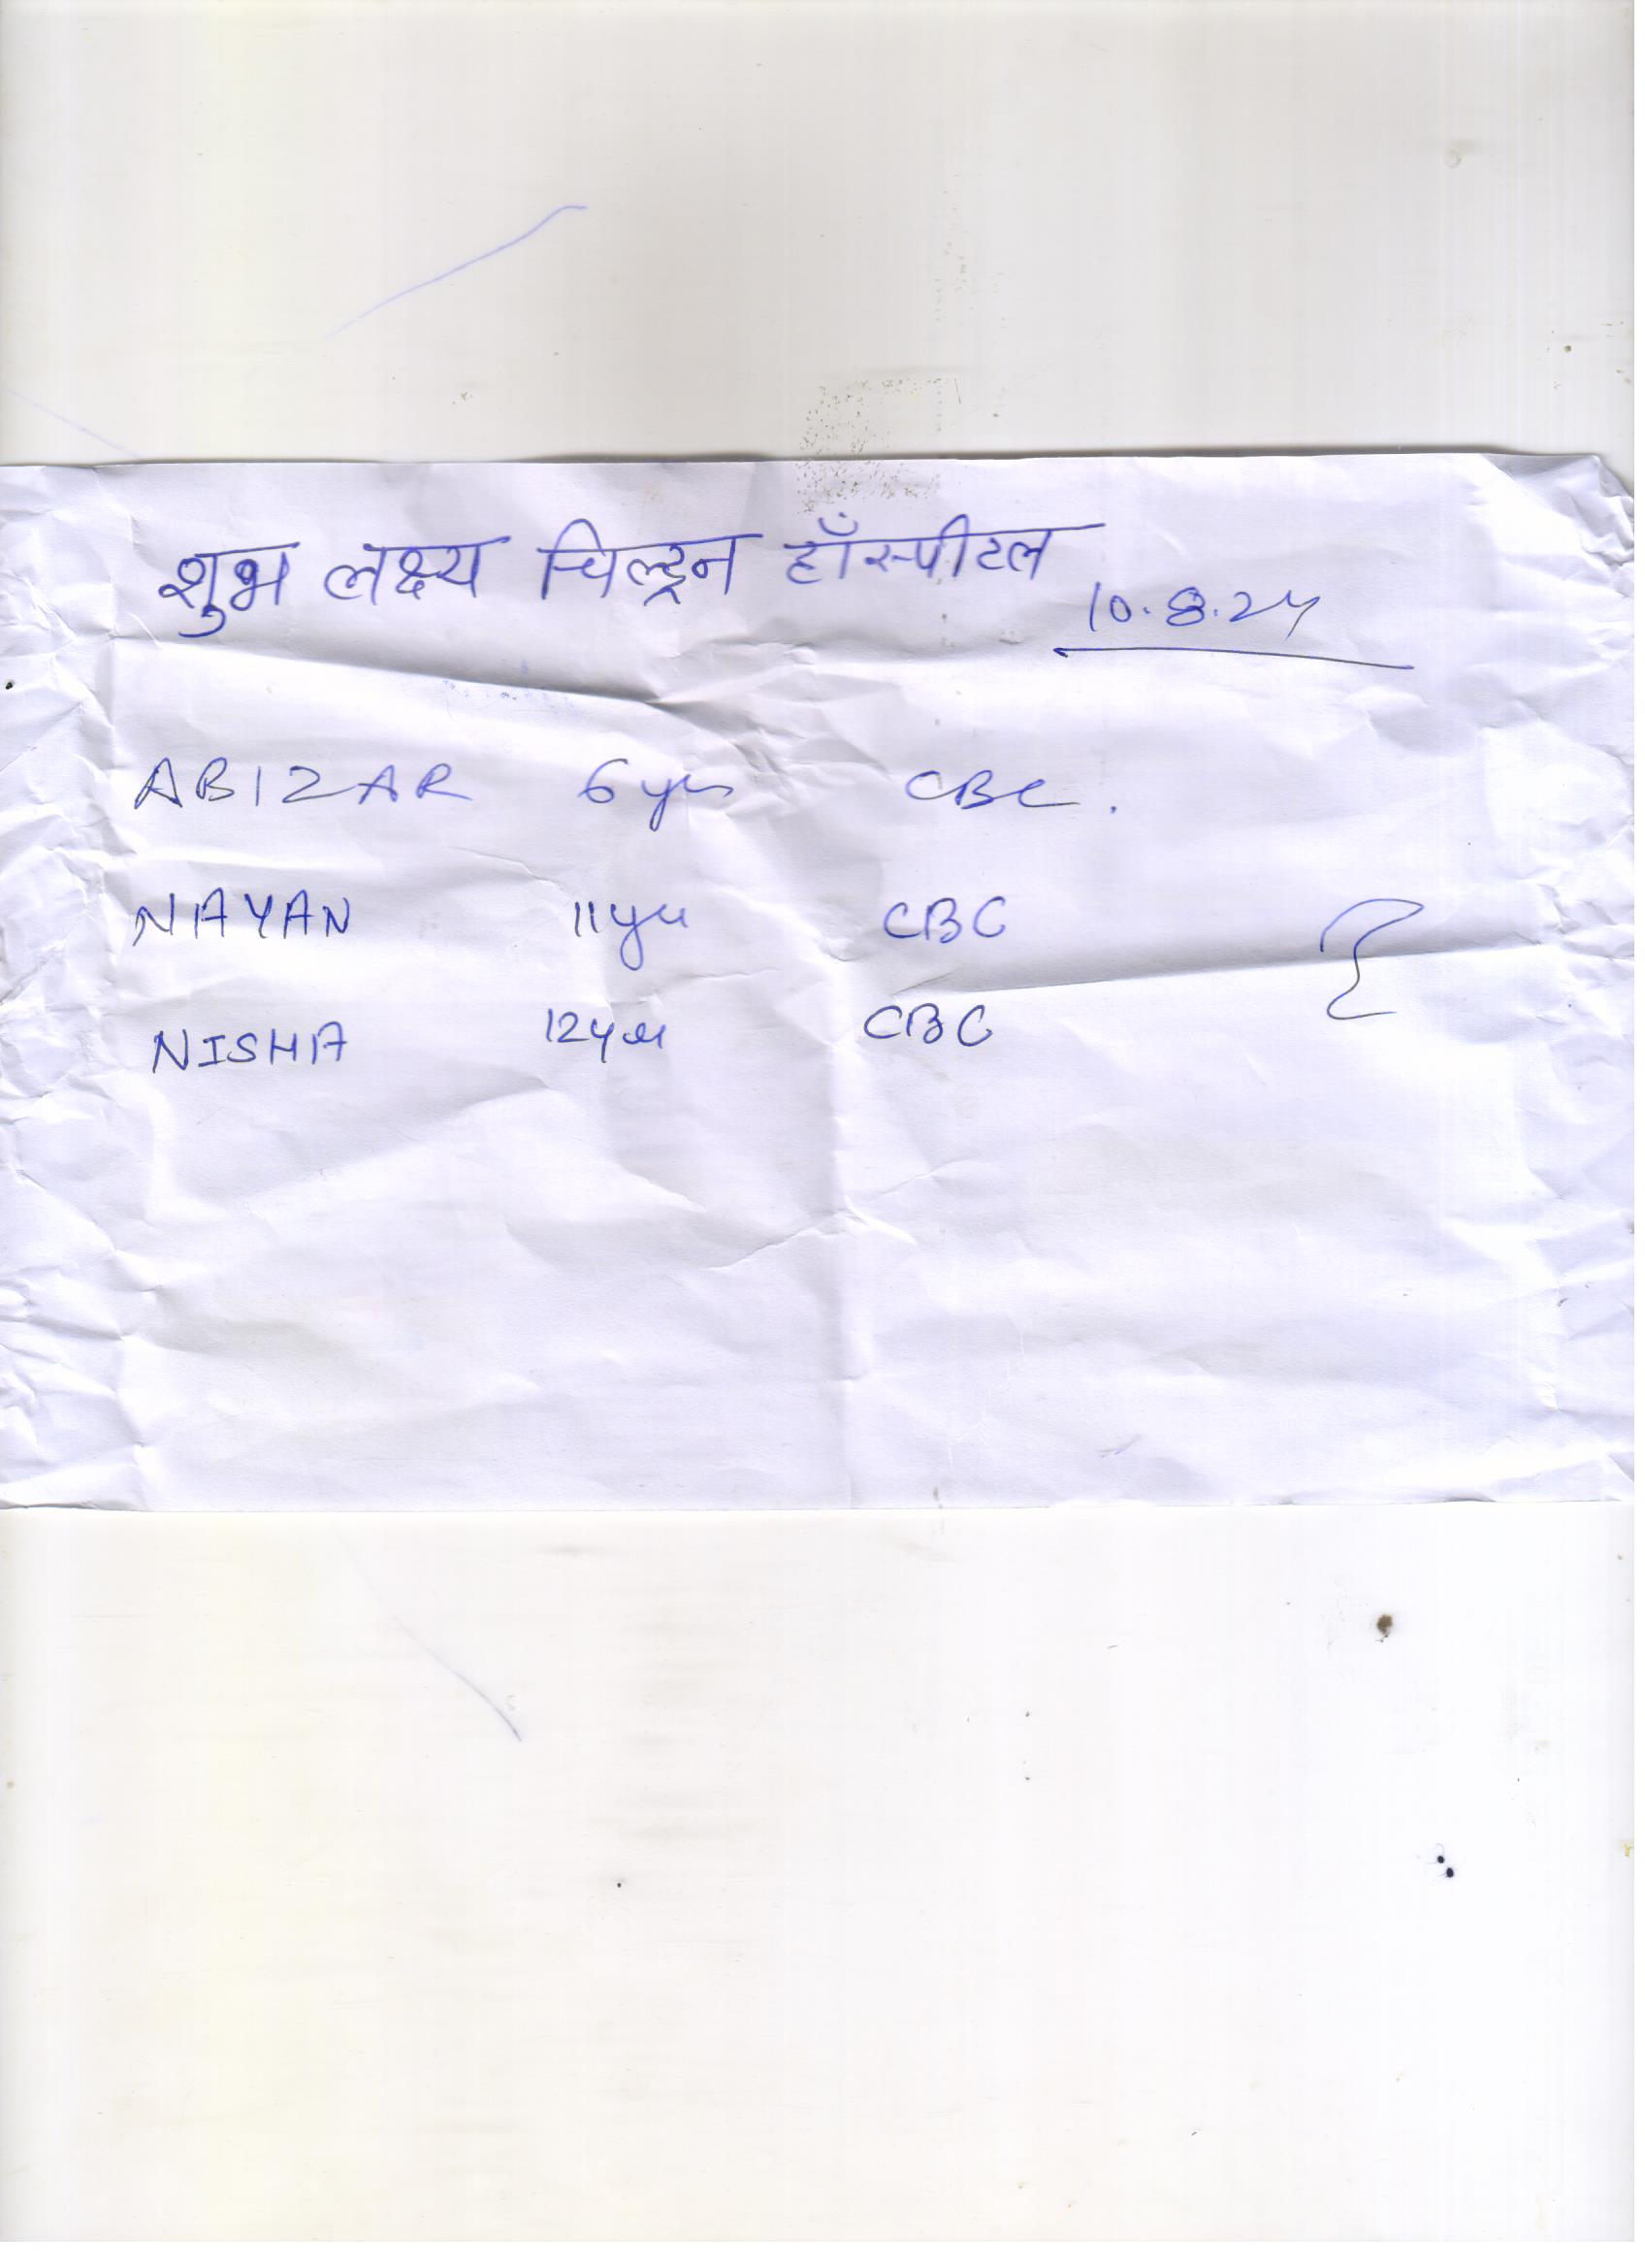 शुभ लक्ष्य चिल्ड्रन हॉस्पीटल
10.8.24
ABIZAR 6 yrs CBC.
NAYAN 11 yrs CBC
NISHA 12 yrs CBC